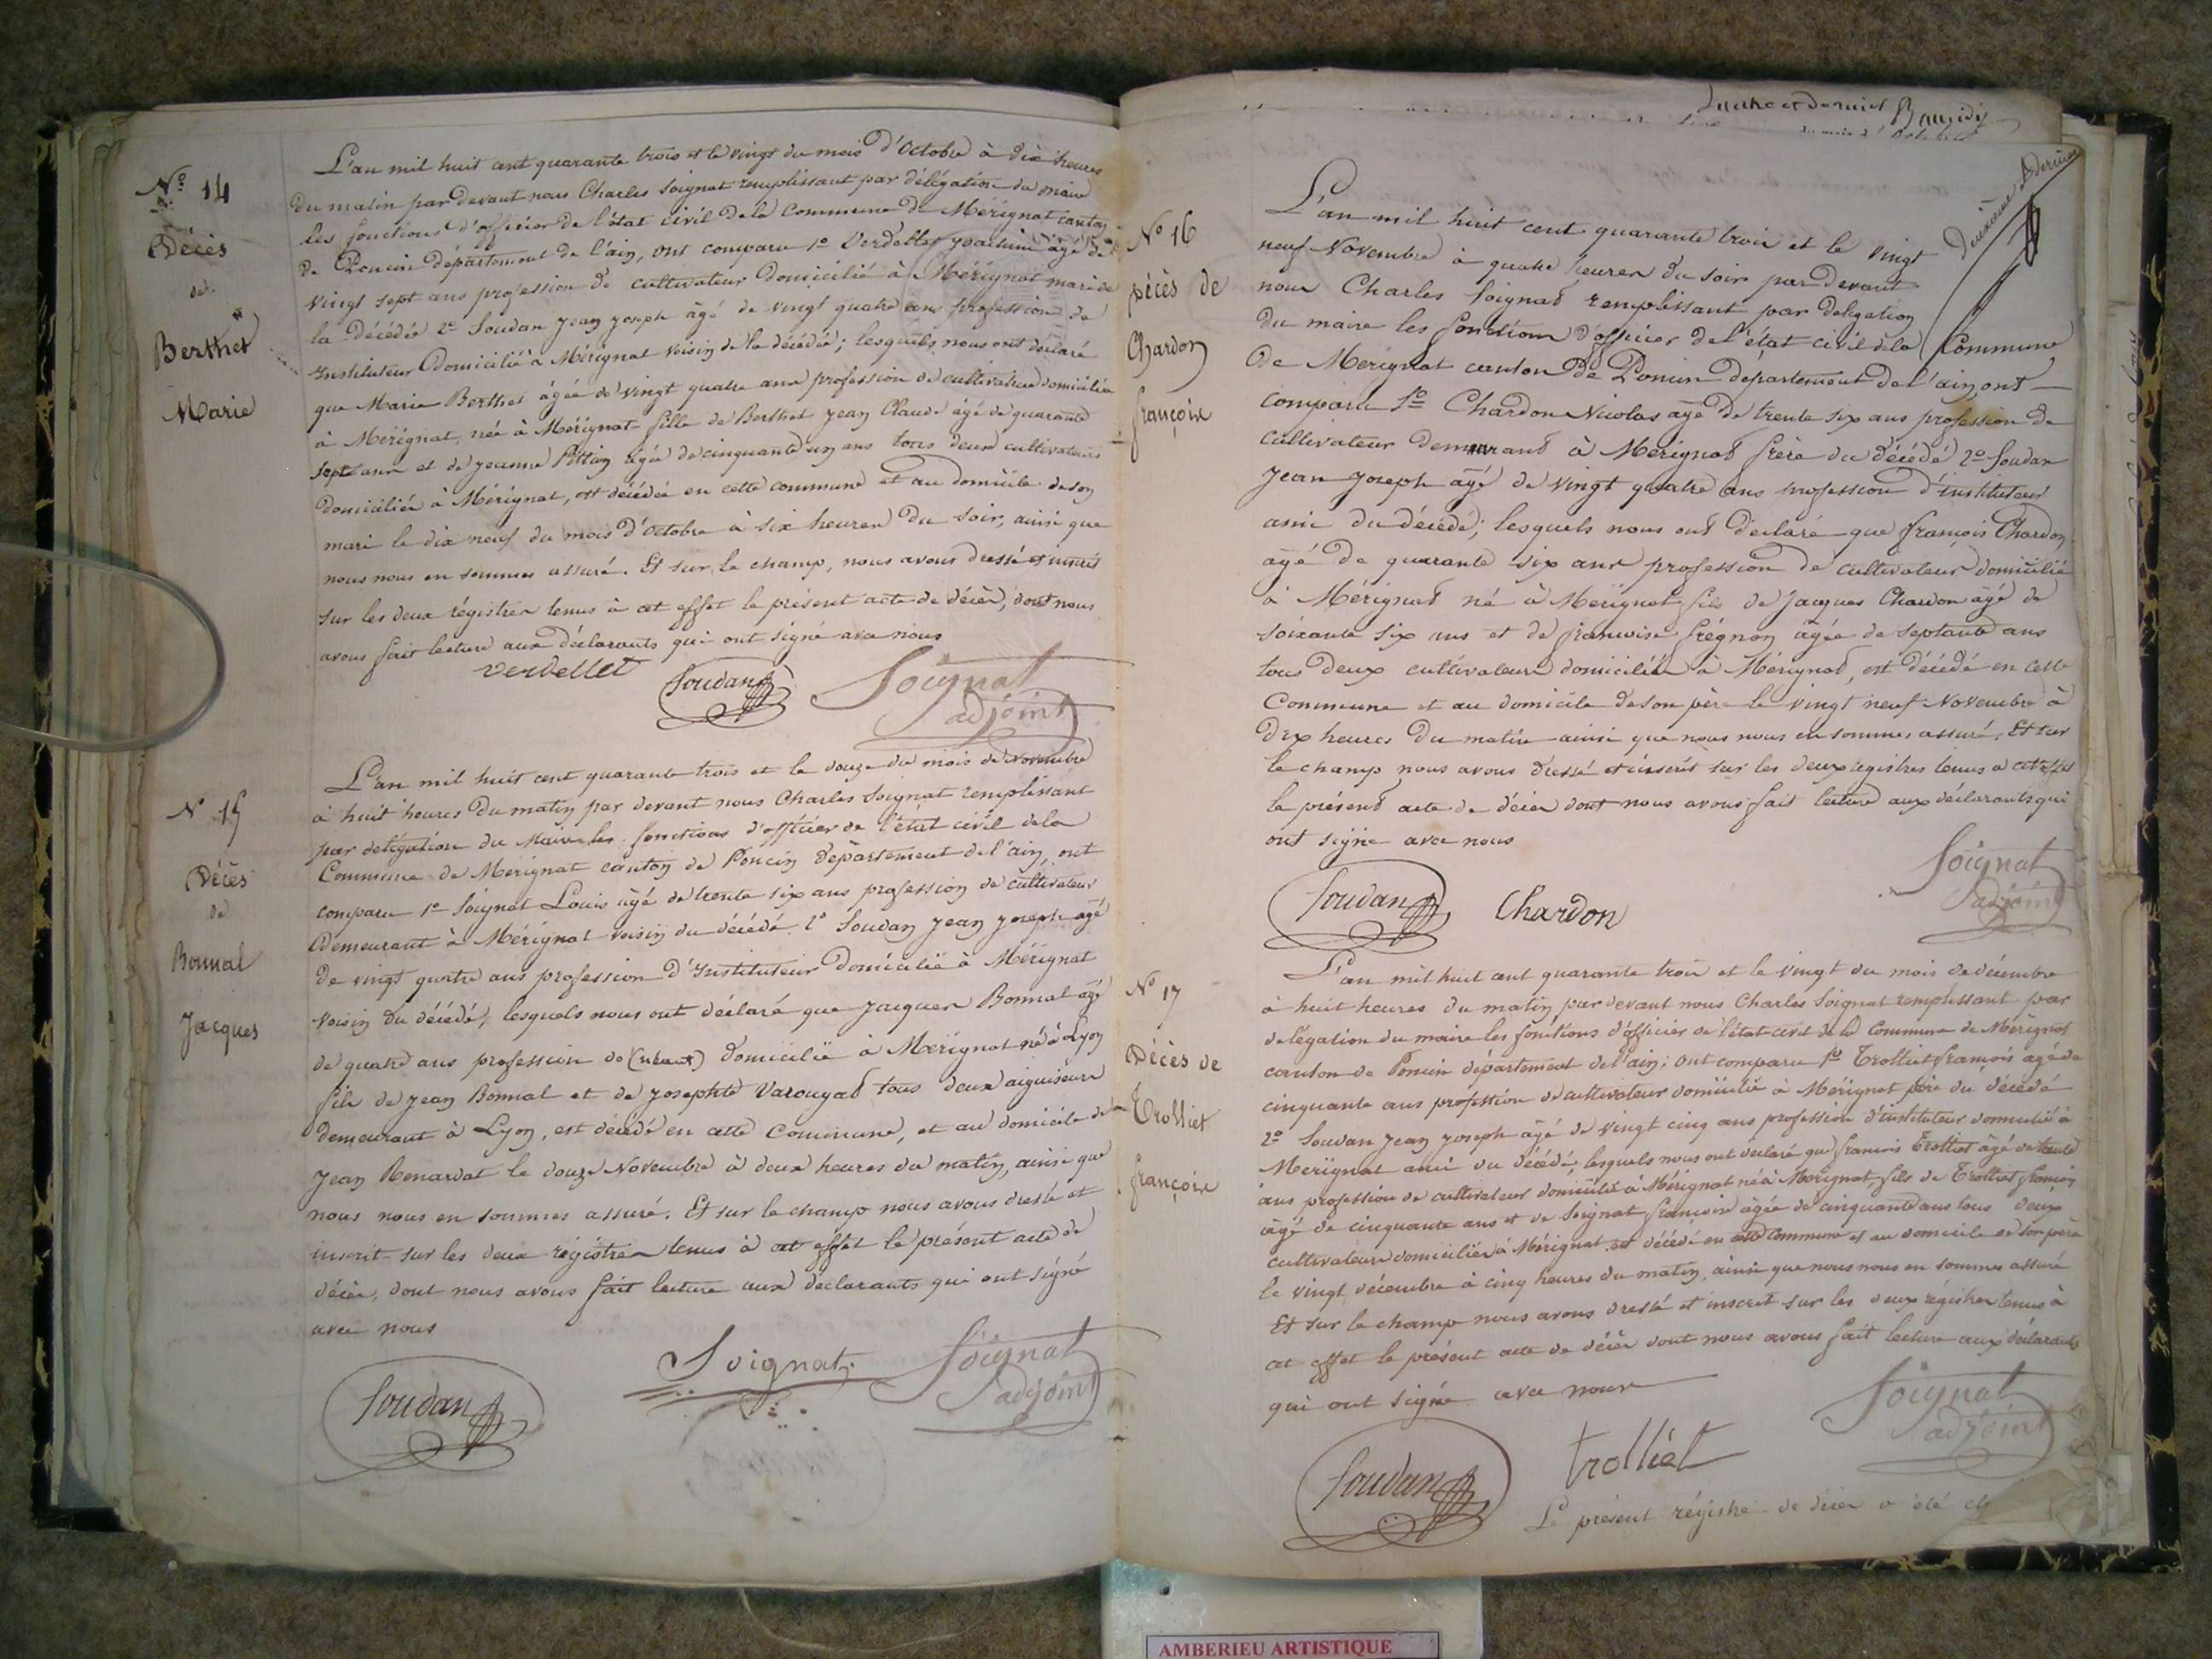 N° 14
Décès
de
Berthet
Marie
L'an mil huit cent quarante trois et le vingt du mois d'Octobre à dix heures
du matin par devant nous Charles Soignat remplissant par délégation du maire
les fonctions d'officier de l'état civil de la Commune de Mérignat canton
de Poncin département de l'ain, ont comparu 1° Verdellet joachim âgé de
vingt sept ans profession de cultivateur domicilié à Mérignat mari de
la décédée 2° Soudan Jean joseph âgé de vingt quatre ans profession de
Instituteur domicilié à Mérignat voisin de la décédée; lesquels nous ont déclaré
que Marie Berthet âgée de vingt quatre ans profession de cultivatrice domiciliée
à Mérignat, née à Mérignat fille de Berthet Jean Claude âgé de quarante
sept ans et de jeanne âgée de cinquante un ans tous deux cultivateurs
domiciliés à Mérignat, est décédée en cette commune et au domicile de son
mari le dix neuf du mois d'octobre à six heures du soir, ainsi que
nous nous en sommes assuré. Et sur le champ, nous avons dressé et inscrit
sur les deux régistres tenus à cet effet le présent acte de décès, dont nous
avons fait lecture aux déclarants qui ont signé avec nous
verdellet Soudan Soignat
adjoint
N° 15
Décès
de
Bonnal
Jacques
L'an mil huit cent quarante trois et le douze du mois de novembre
à huit heures du matin par devant nous Charles Soignat remplissant
par délégation du Maire les fonctions d'officier de l'état civil de la
Commune de Mérignat canton de Poncin département de l'ain, ont
comparu 1° Soignat Louis âgé de trente six ans profession de cultivateur
demeurant à Mérignat voisin du décédé 2° Soudan Jean Joseph âgé
de vingt quatre ans profession d'Instituteur domicilié à Mérignat
voisin du décédé; lesquels nous ont déclaré que Jacques Bonnal âgé
de quatre ans profession de (néant) domicilié à Mérignat né à Lyon
fils de Jean Bonnal et de Josephte Varougat tous deux aiguiseurs
demeurant à Lyon, est décédé en cette Commune, et au domicile de
Jean Renardat le douze Novembre à deux heures du matin, ainsi que
nous nous en sommes assuré. Et sur le champ nous avons dressé et
inscrit sur les deux régistres tenus à cet effet le présent acte de
décès, dont nous avons fait lecture aux déclarants qui ont signé
avec nous
Soudan Soignat Soignat
adjoint
Deuxième et dernier
N° 16
Décès de
Chardon
françois
L'an mil huit cent quarante trois et le vingt
neuf Novembre à quatre heures du soir par devant
nous Charles Soignat remplissant par délégation
du maire les fonctions d'officier de l'état civil de la Commune
de Mérignat canton de Poncin département de l'ain, ont
comparu 1° Chardon Nicolas âgé de trente six ans profession de
cultivateur demeurant à Mérignat frère du décédé 2° Soudan
Jean Joseph âgé de vingt quatre ans profession d'instituteur
ami du décédé; lesquels nous ont déclaré que françois Chardon
âgé de quarante six ans profession de cultivateur domicilié
à Mérignat né à Mérignat fils de Jacques Chardon âgé de
soixante six ans et de françoise Frégnon âgée de septante ans
tous deux cultivateurs domiciliés à Mérignat, est décédé en cette
Commune et au domicile de son père le vingt neuf Novembre à
dix heures du matin ainsi que nous nous en sommes assuré. Et sur
le champ nous avons dressé et inscrit sur les deux registres tenus à cet effet
le présent acte de décès dont nous avons fait lecture aux déclarants qui
ont signé avec nous
Soudan Chardon Soignat
adjoint
N° 17
Décès de
Trolliet
françois
L'an mil huit cent quarante trois et le vingt du mois de décembre
à huit heures du matin par devant nous Charles Soignat remplissant par
délégation du maire les fonctions d'officier de l'état civil de la Commune de Mérignat
canton de Poncin département de l'ain; ont comparu 1° Trolliet françois agé de
cinquante ans profession de cultivateur domicilié à Mérignat père du décédé
2° Soudan Jean joseph âgé de vingt cinq ans profession d'instituteur domicilié à
Mérignat ami du décédé, lesquels nous ont déclaré que françois Trolliet âgé de trente
ans profession de cultivateur domicilié à Mérignat né à Mérignat, fils de Trolliet françois
âgé de cinquante ans et de Soignat françoise âgée de cinquante ans tous deux
cultivateurs domiciliés à Mérignat est décédé en cette Commune et au domicile de son père
le vingt décembre à cinq heures du matin, ainsi que nous nous en sommes assuré
Et sur le champ nous avons dressé et inscrit sur les deux régistres tenus à
cet effet le présent acte de décès dont nous avons fait lecture aux déclarants
qui ont signé avec nous
Soudan trolliet Soignat
adjoint
Le présent régistre de décès a été
AMBERIEU ARTISTIQUE